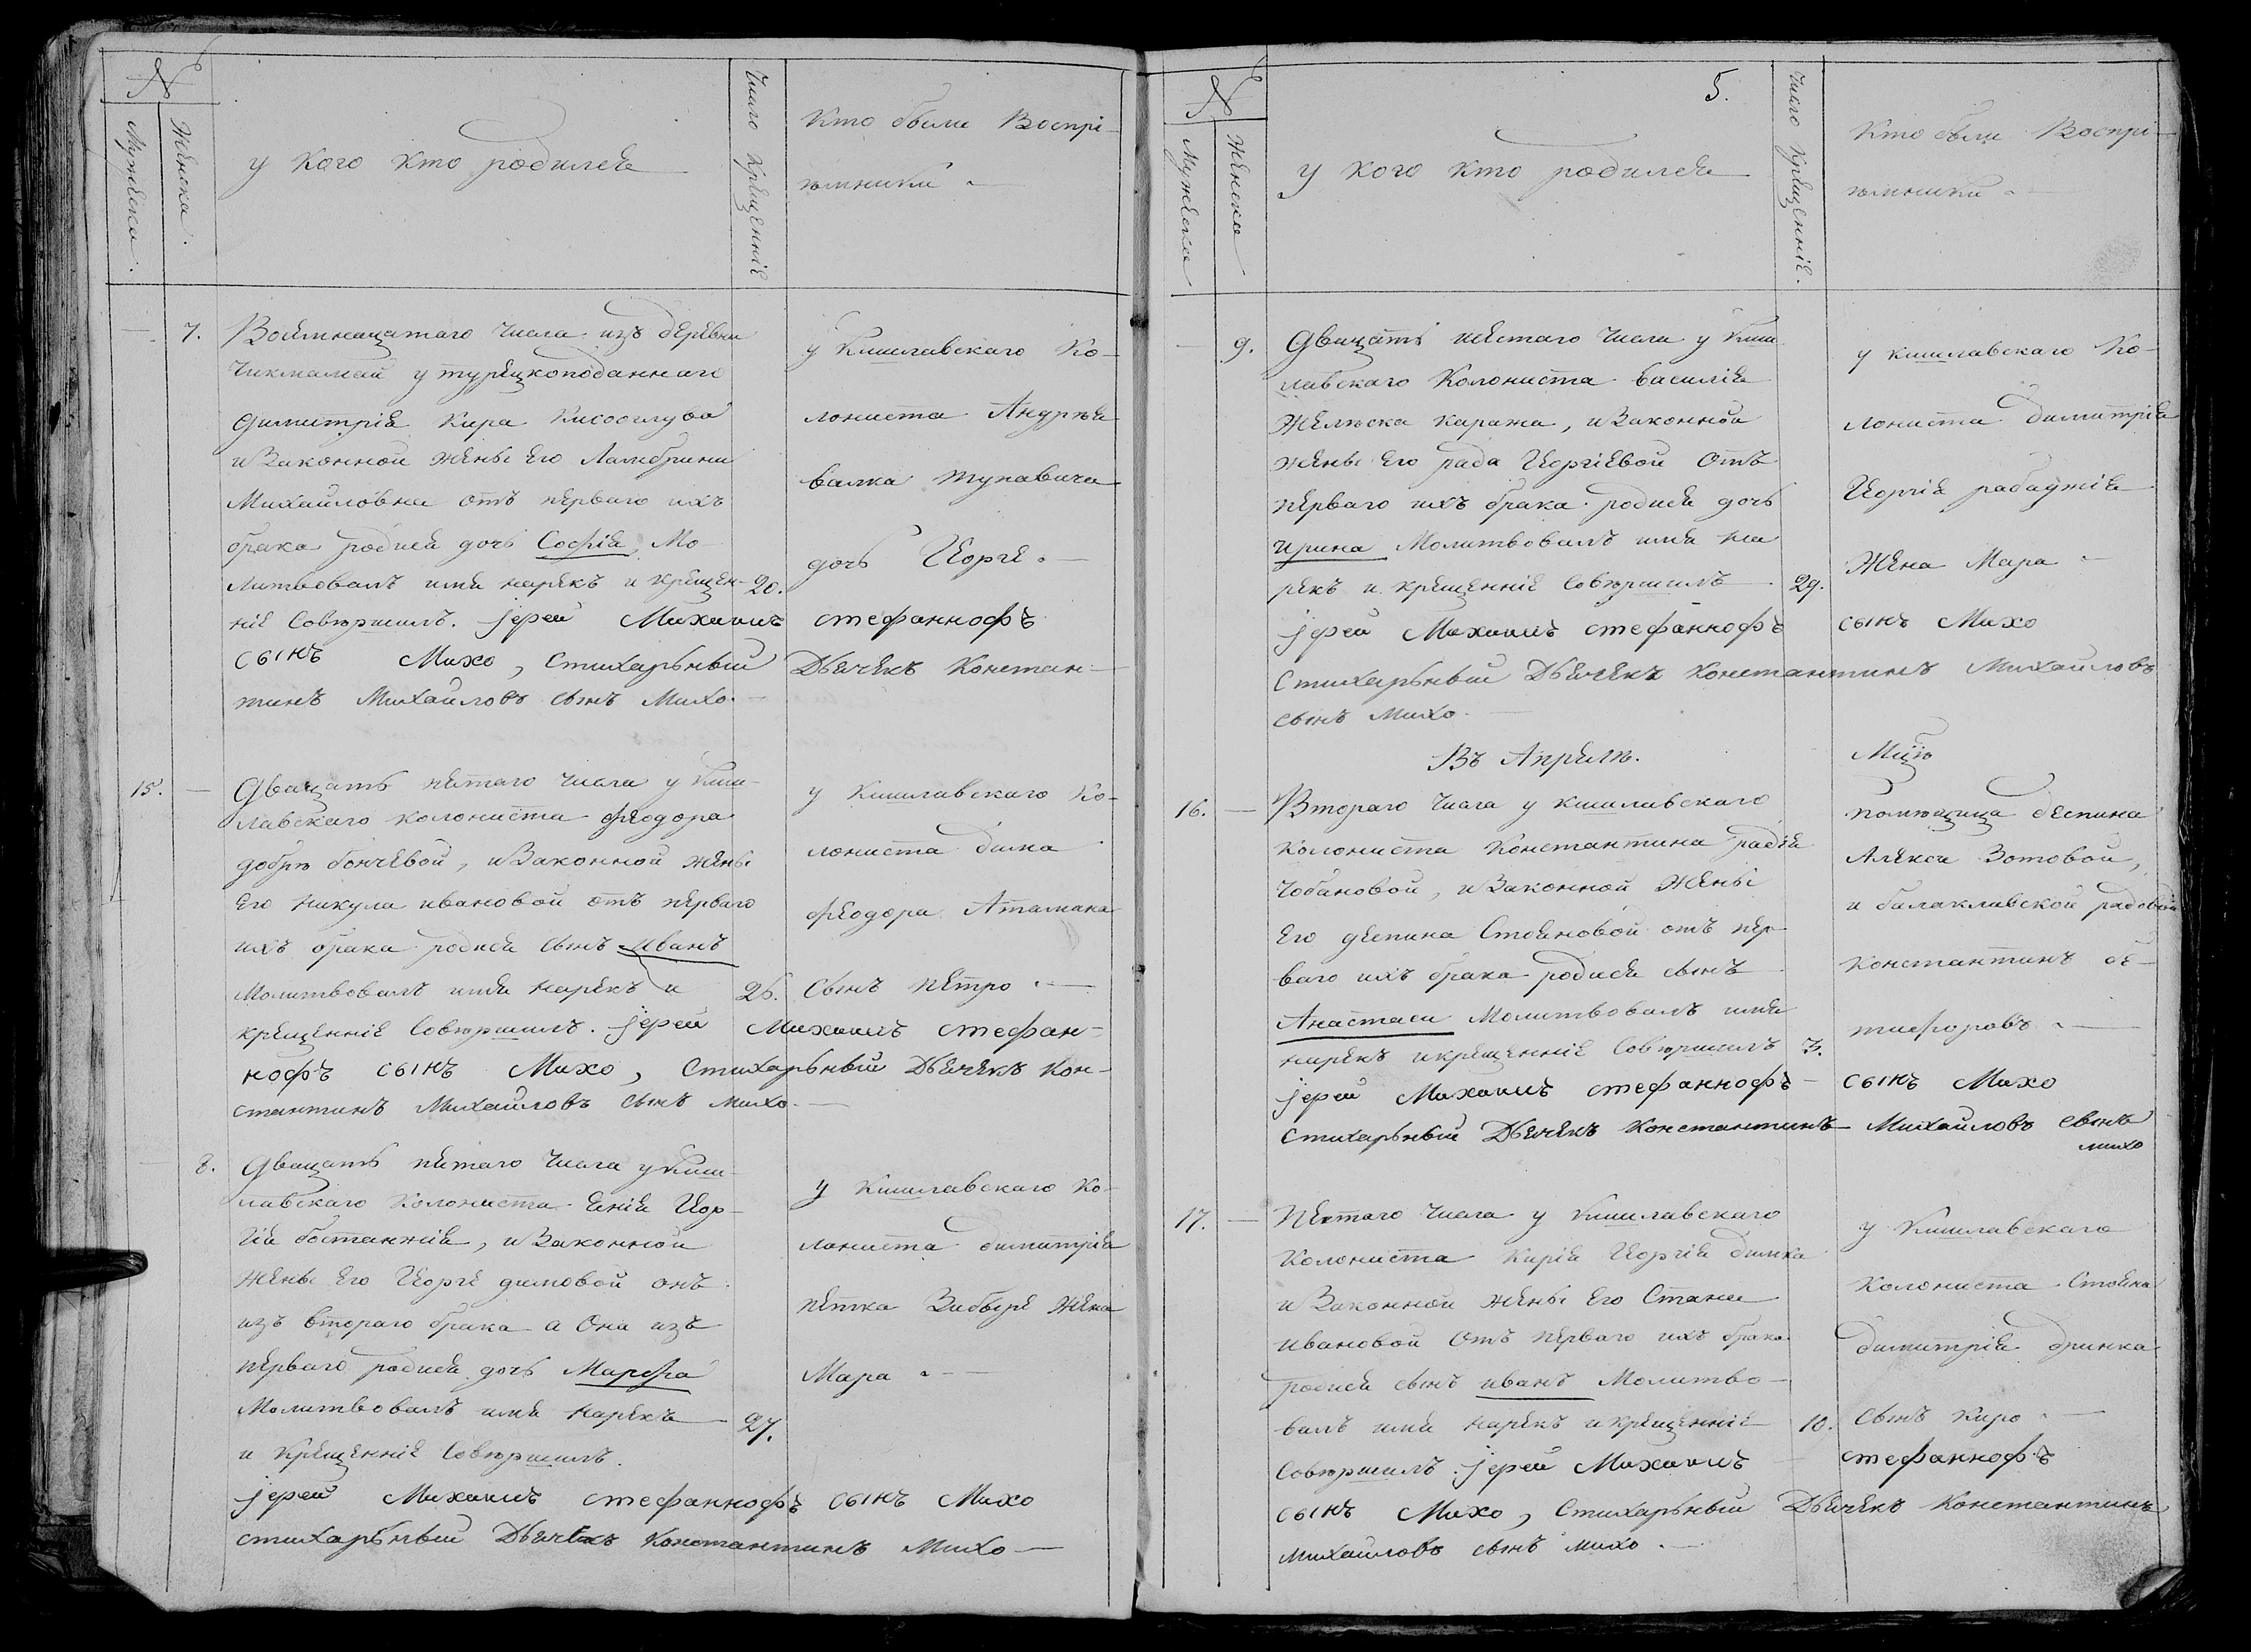 №
Мужеска.
Женска.
у кого кто родился
Число крещеніе
Кто были Воспрі-
ѣмники
7.
Восемнацатаго числа изъ деревни
Чикмамай у турецкоподаннаго
Димитрія Кира
и Законной жены Его Ламбрини
Михайловна отъ перваго ихъ
брака родися дочь Софія, Мо-
литвовалъ имя нарекъ и крещен-
20.
ніе Совѣршилъ. Іерей Михаилъ стефаннофъ
сынъ Михо, Стихарьный Дьячекъ Констан-
тинъ Михайловъ сынъ Михо.
у Кишлавскаго Ко-
лониста Андрѣя
валка тупавича
дочь Георге.
15.
Двацать пятаго числа у Киш-
лавскаго колониста Феодора
добрѣ бончевой, и Законной жены
Его Никула ивановой отъ перваго
ихъ брака родися сынъ иванъ
Молитвовалъ имя нарекъ и
26.
крещенніе Совѣршилъ. Іерей Михаилъ стефан-
нофъ сынъ Михо, Стихарьный Дьячекъ Кон-
стантинъ Михайловъ сынъ михо.
у Кишлавскаго Ко-
лониста дима
феодора Атамана
Сынъ петро.
8.
Двацать пятаго числа у Киш-
лавскаго Колониста янія Геор-
гія бостанжія, и Законной
жены Его Георге димовой онъ
изъ втораго брака а Она изъ
перваго родися дочь Марфа
Молитвовалъ имя нарекъ
27.
и Крещенніе Совѣршилъ.
Іерей Михаилъ стефаннофъ сынъ Михо
стихарьный Дьячекъ Константинъ Михо
у Кишлавскаго Ко-
лониста димитрія
петка жена
Мара
№
Мужеска
Женска
5.
у кого кто родился
Число Крещенніе.
Кто были Воспрі-
ѣмники
9.
Двацать шестаго числа у Киш
лавскаго Колониста василія
Желѣска каража, и Законной
жены Его рада Георгіевой Отъ
перваго ихъ брака родися дочь
ирина Молитвовалъ имя на
рекъ и крещенніе Совѣршилъ
29.
Іерей Михаилъ стефаннофъ сынъ Михо
Стихарьный Дьячекъ Константинъ Михайловъ
сынъ Михо.
у кишлавскаго Ко-
лониста димитрія
Георгія рабаджія
Жена Мара
Въ Апрелѣ.
Мцѣ
16.
Втораго числа у кишлавскаго
колониста Константина радія
чобановой, и Законной жены
Его деспина Стояновой отъ пер-
ваго ихъ брака родися сынъ
Анастаси Молитвовалъ имя
нарекъ и крещенніе Совѣршилъ
3.
Іерей Михаилъ стефаннофъ сынъ Михо
стихарьный Дьячекъ Константинъ Михайловъ сынъ
михо
помѣщица деспина
Алекси Зотовой,
и балаклавской радовой
константинъ
17.
Пятаго числа у Кишлавскаго
Колониста Кирія Георгія димка
и Законной жены Его Стана
ивановой Отъ перваго ихъ брака
родися сынъ иванъ Молитво-
валъ имя нарекъ и крещенніе
10.
Совѣршилъ. Іерей Михаилъ стефаннофъ
сынъ Михо, Стихарьный Дьячекъ Константинъ
михайловъ сынъ михо.
у Кишлавскаго
Колониста Стояна
димитрія дринка
Сынъ Киро